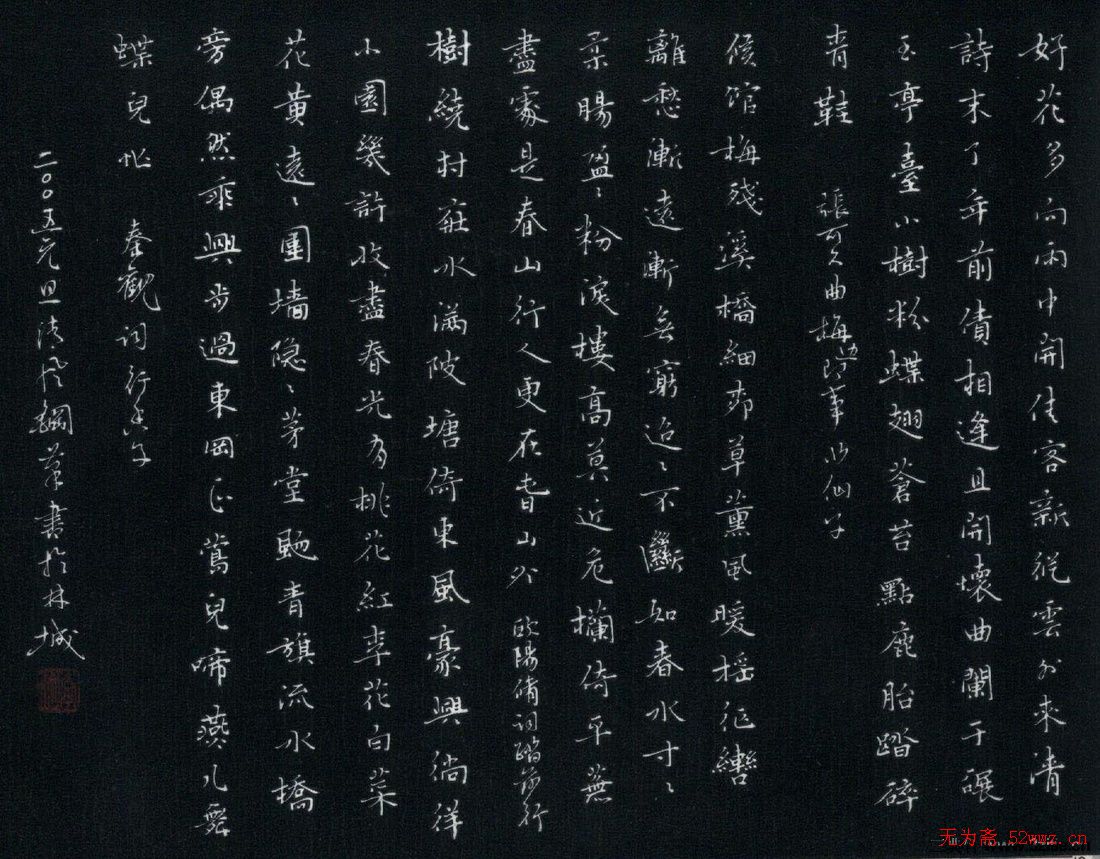 好花多向雨中開佳客新從雲外來清
詩未了年前債相逢且開壞曲闌干碾
玉亭臺小樹粉蝶翅蒼苔點鹿胎踏碎
青鞋 張可久曲梅邊即事水仙子
候馆梅殘溪橋細柳草薰風暖摇征轡
離愁漸遠漸無窮迢〻不斷如春水寸〻
柔腸盈〻粉淚樓高莫近危欄倚平蕪
盡處是春山行人更在春山外 欧陽脩詞踏莎行
樹繞村莊水滿陂塘倚東風豪興徜徉
小園幾許收盡春光有桃花紅李花白菜
花黄遠〻圍墙隐〻茅堂颺青旗流水橋
旁偶然乘興步過東岡正鶯兒啼燕兒舞
蝶兒忙 秦觀詞行香子
二〇〇五元旦清风鋼筆書於林城
无为斋.52wwz.cn